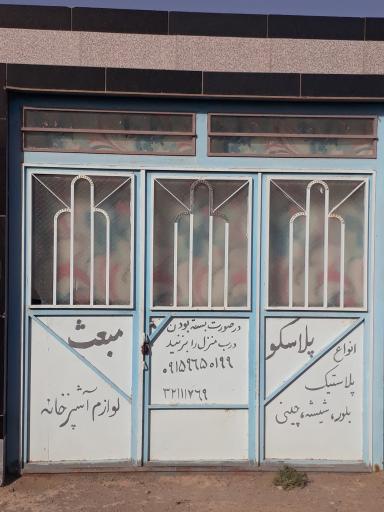 پلاسکو
مبعث
انواع
پلاستیک
بلور، شیشه، چینی
در صورت بسته بودن
درب منزل را بزنید
۰۹۱۵۹۶۵۰۱۹۹
۳۲۱۱۱۷۶۹
لوازم آشپزخانه